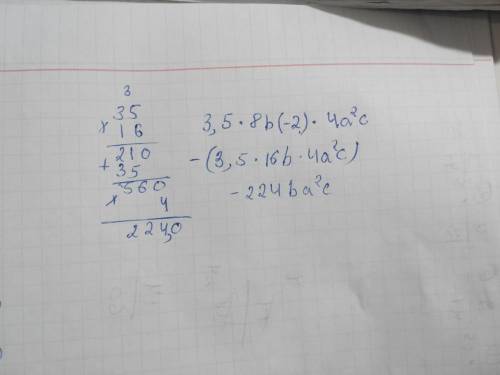 3
35
× 16
210
+ 35
560
× 4
224,0
3,5 · 8b(-2) · 4a²c
-(3,5 · 16b · 4a²c)
- 224ba²c